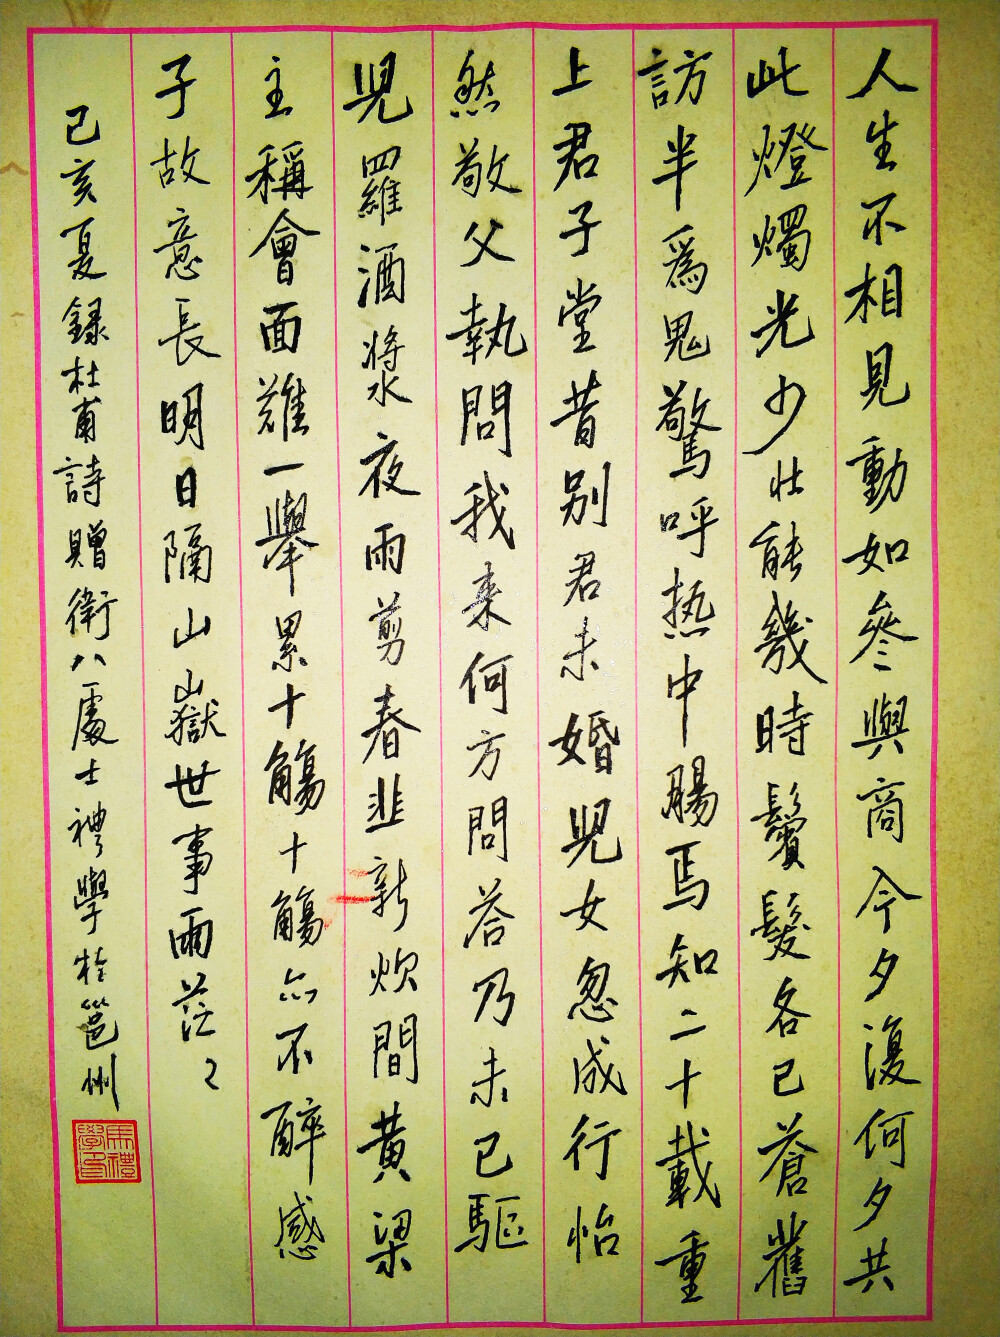 人生不相見動如參與商今夕復何夕共
此燈燭光少壯能幾時鬢髮各已蒼舊
訪半爲鬼驚呼热中腸焉知二十載重
上君子堂昔别君未婚児女忽成行怡
然敬父執問我来何方問荅乃未已驅
児羅酒漿夜雨剪春韭新炊間黄梁
主稱會面難一舉累十觴十觴亦不醉感
子故意長明日隔山嶽世事兩茫〻
己亥夏録杜甫詩贈衛八處士禮學於邕州
馬禮學印